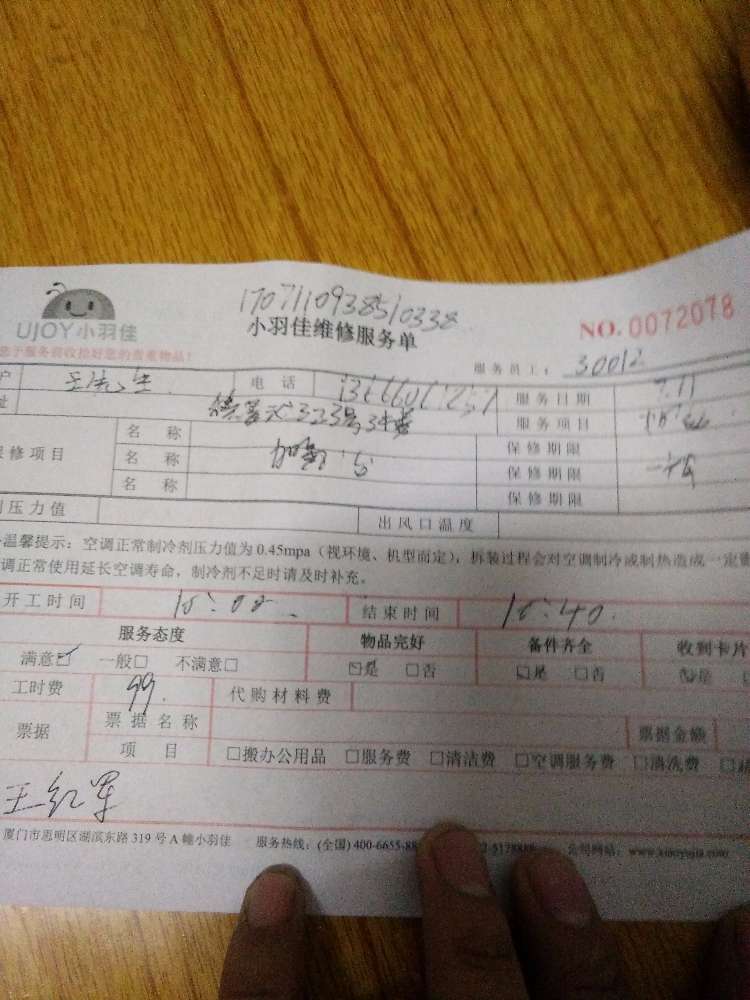 1707110938510338
UJOY小羽佳
小羽佳维修服务单
NO.0072078
您于服务前收拾好您的贵重物品!
服务员工: 30012
户 王先生 电话 服务日期 7.11
址 323号 服务项目
保修项目 名称 保修期限
名称 加氟 保修期限 一年
名称 保修期限
压力值 出风口温度
温馨提示:空调正常制冷剂压力值为0.45mpa(视环境、机型而定),拆装过程会对空调制冷或制热造成一定
调正常使用延长空调寿命,制冷剂不足时请及时补充。
开工时间 15:00 结束时间 15:40
服务态度 物品完好 备件齐全 收到卡片
满意☑ 一般□ 不满意□ ☑是 □否 ☑是 □否 ☑是
工时费 99 代购材料费
票据 票据名称 票据金额
项目 □搬办公用品 □服务费 □清洁费 □空调服务费 □清洗费
王红军
厦门市思明区湖滨东路319号A幢小羽佳 服务热线:(全国)400-6655-88 公司网站:www.xiaoyujia.com